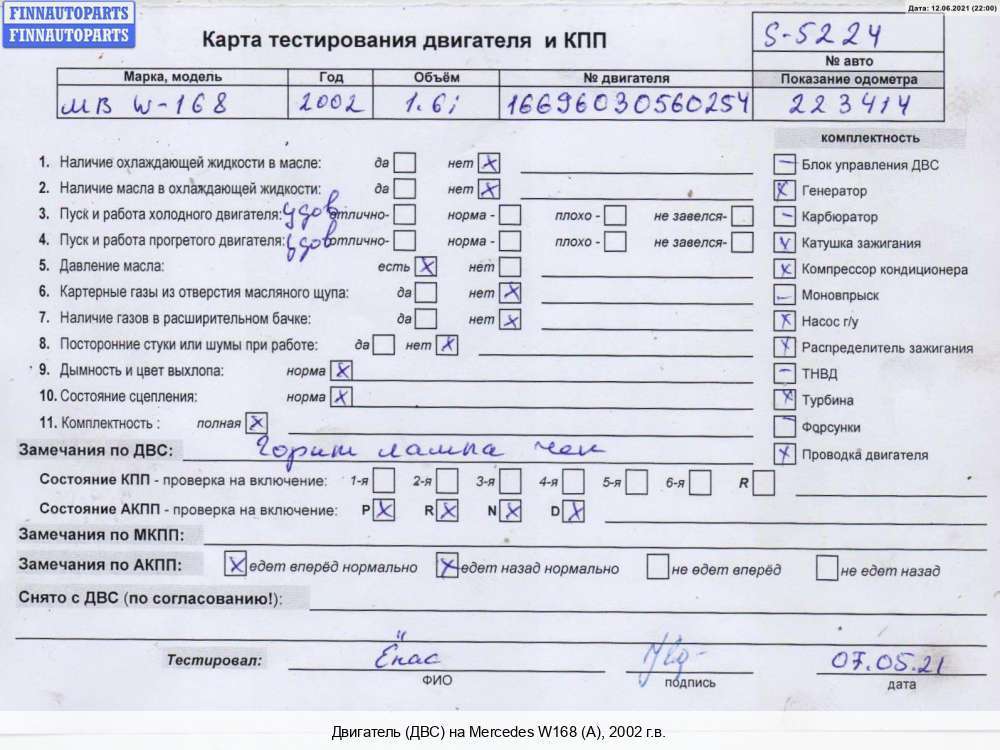 FINNAUTOPARTS
FINNAUTOPARTS
Дата: 12.06.2021 (22:00)
Карта тестирования двигателя и КПП
S-5224
№ авто
Марка, модель Год Объём № двигателя Показание одометра
МВ W-168 2002 1.6i 16696030560254 223414
комплектность
1. Наличие охлаждающей жидкости в масле: да нет x
Блок управления ДВС
2. Наличие масла в охлаждающей жидкости: да нет x
Генератор
3. Пуск и работа холодного двигателя: удов отлично- норма - плохо - не завелся-
Карбюратор
4. Пуск и работа прогретого двигателя: удов отлично- норма - плохо - не завелся-
Катушка зажигания
5. Давление масла: есть x нет
Компрессор кондиционера
6. Картерные газы из отверстия масляного щупа: да нет x
Моновпрыск
7. Наличие газов в расширительном бачке: да нет x
Насос г/у
8. Посторонние стуки или шумы при работе: да нет x
Распределитель зажигания
9. Дымность и цвет выхлопа: норма x
ТНВД
10. Состояние сцепления: норма x
Турбина
11. Комплектность : полная x
Форсунки
Замечания по ДВС: Горит лампа чек
Проводка двигателя
Состояние КПП - проверка на включение: 1-я 2-я 3-я 4-я 5-я 6-я R
Состояние АКПП - проверка на включение: P x R x N x D x
Замечания по МКПП:
Замечания по АКПП: x едет вперёд нормально x едет назад нормально не едет вперёд не едет назад
Снято с ДВС (по согласованию!):
Тестировал: 07.05.21
ФИО подпись дата
Двигатель (ДВС) на Mercedes W168 (A), 2002 г.в.